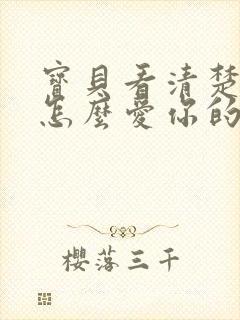 寶貝看清楚
怎麼愛你的
櫻落三千